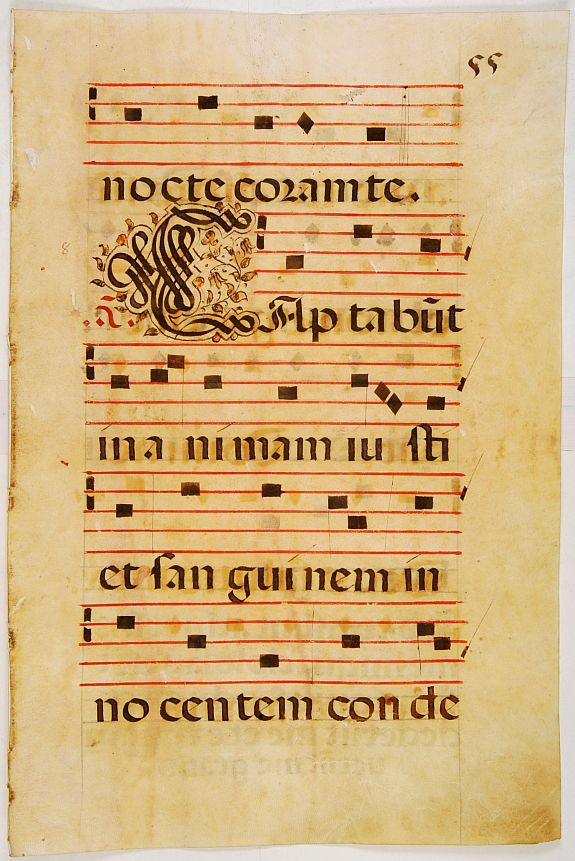 55
nocte coram te.
.ã. CAptabũt
in a nimam iu sti
et san gui nem in
no centem con de